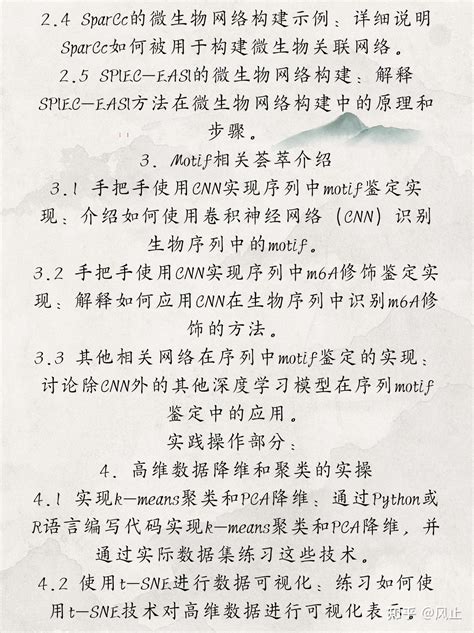 2.4 SparCc的微生物网络构建示例：详细说明
SparCc如何被用于构建微生物关联网络。
2.5 SPIEC-EASI的微生物网络构建：解释
SPIEC-EASI方法在微生物网络构建中的原理和
步骤。
3. Motif相关荟萃介绍
3.1 手把手使用CNN实现序列中motif鉴定实
现：介绍如何使用卷积神经网络（CNN）识别
生物序列中的motif。
3.2 手把手使用CNN实现序列中m6A修饰鉴定实
现：解释如何应用CNN在生物序列中识别m6A修
饰的方法。
3.3 其他相关网络在序列中motif鉴定的实现：
讨论除CNN外的其他深度学习模型在序列motif
鉴定中的应用。
实践操作部分：
4. 高维数据降维和聚类的实操
4.1 实现k-means聚类和PCA降维：通过Python或
R语言编写代码实现k-means聚类和PCA降维，并
通过实际数据集练习这些技术。
4.2 使用t-SNE进行数据可视化：练习如何使
用t-SNE技术对高维数据进行可视化表示。
知乎 @风止